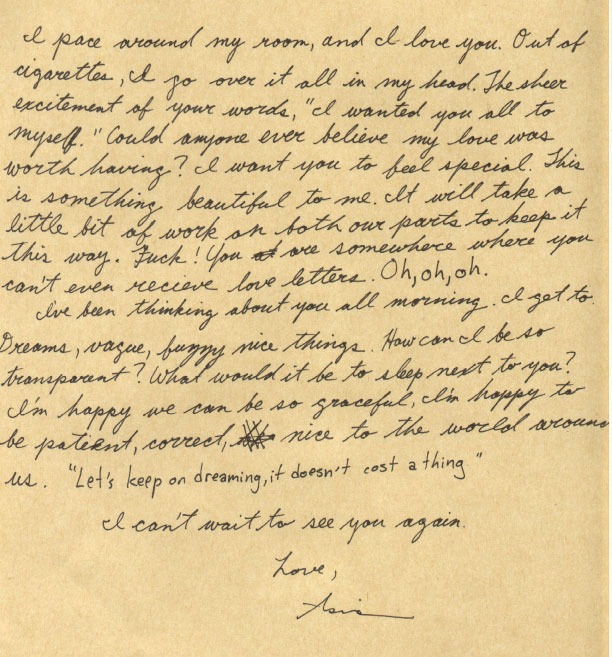 I pace around my room, and I love you. Out of
cigarettes, I go over it all in my head. The sheer
excitement of your words, "I wanted you all to
myself." Could anyone ever believe my love was
worth having? I want you to feel special. This
is something beautiful to me. It will take a
little bit of work on both our parts to keep it
this way. Fuck! You are somewhere where you
can't even recieve love letters. Oh, oh, oh.
I've been thinking about you all morning. I get to.
Dreams, vague, fuzzy nice things. How can I be so
transparent? What would it be to sleep next to you?
I'm happy we can be so graceful, I'm happy to
be patient, correct, nice to the world around
us. "Let's keep on dreaming, it doesn't cost a thing"
I can't wait to see you again.
Love,